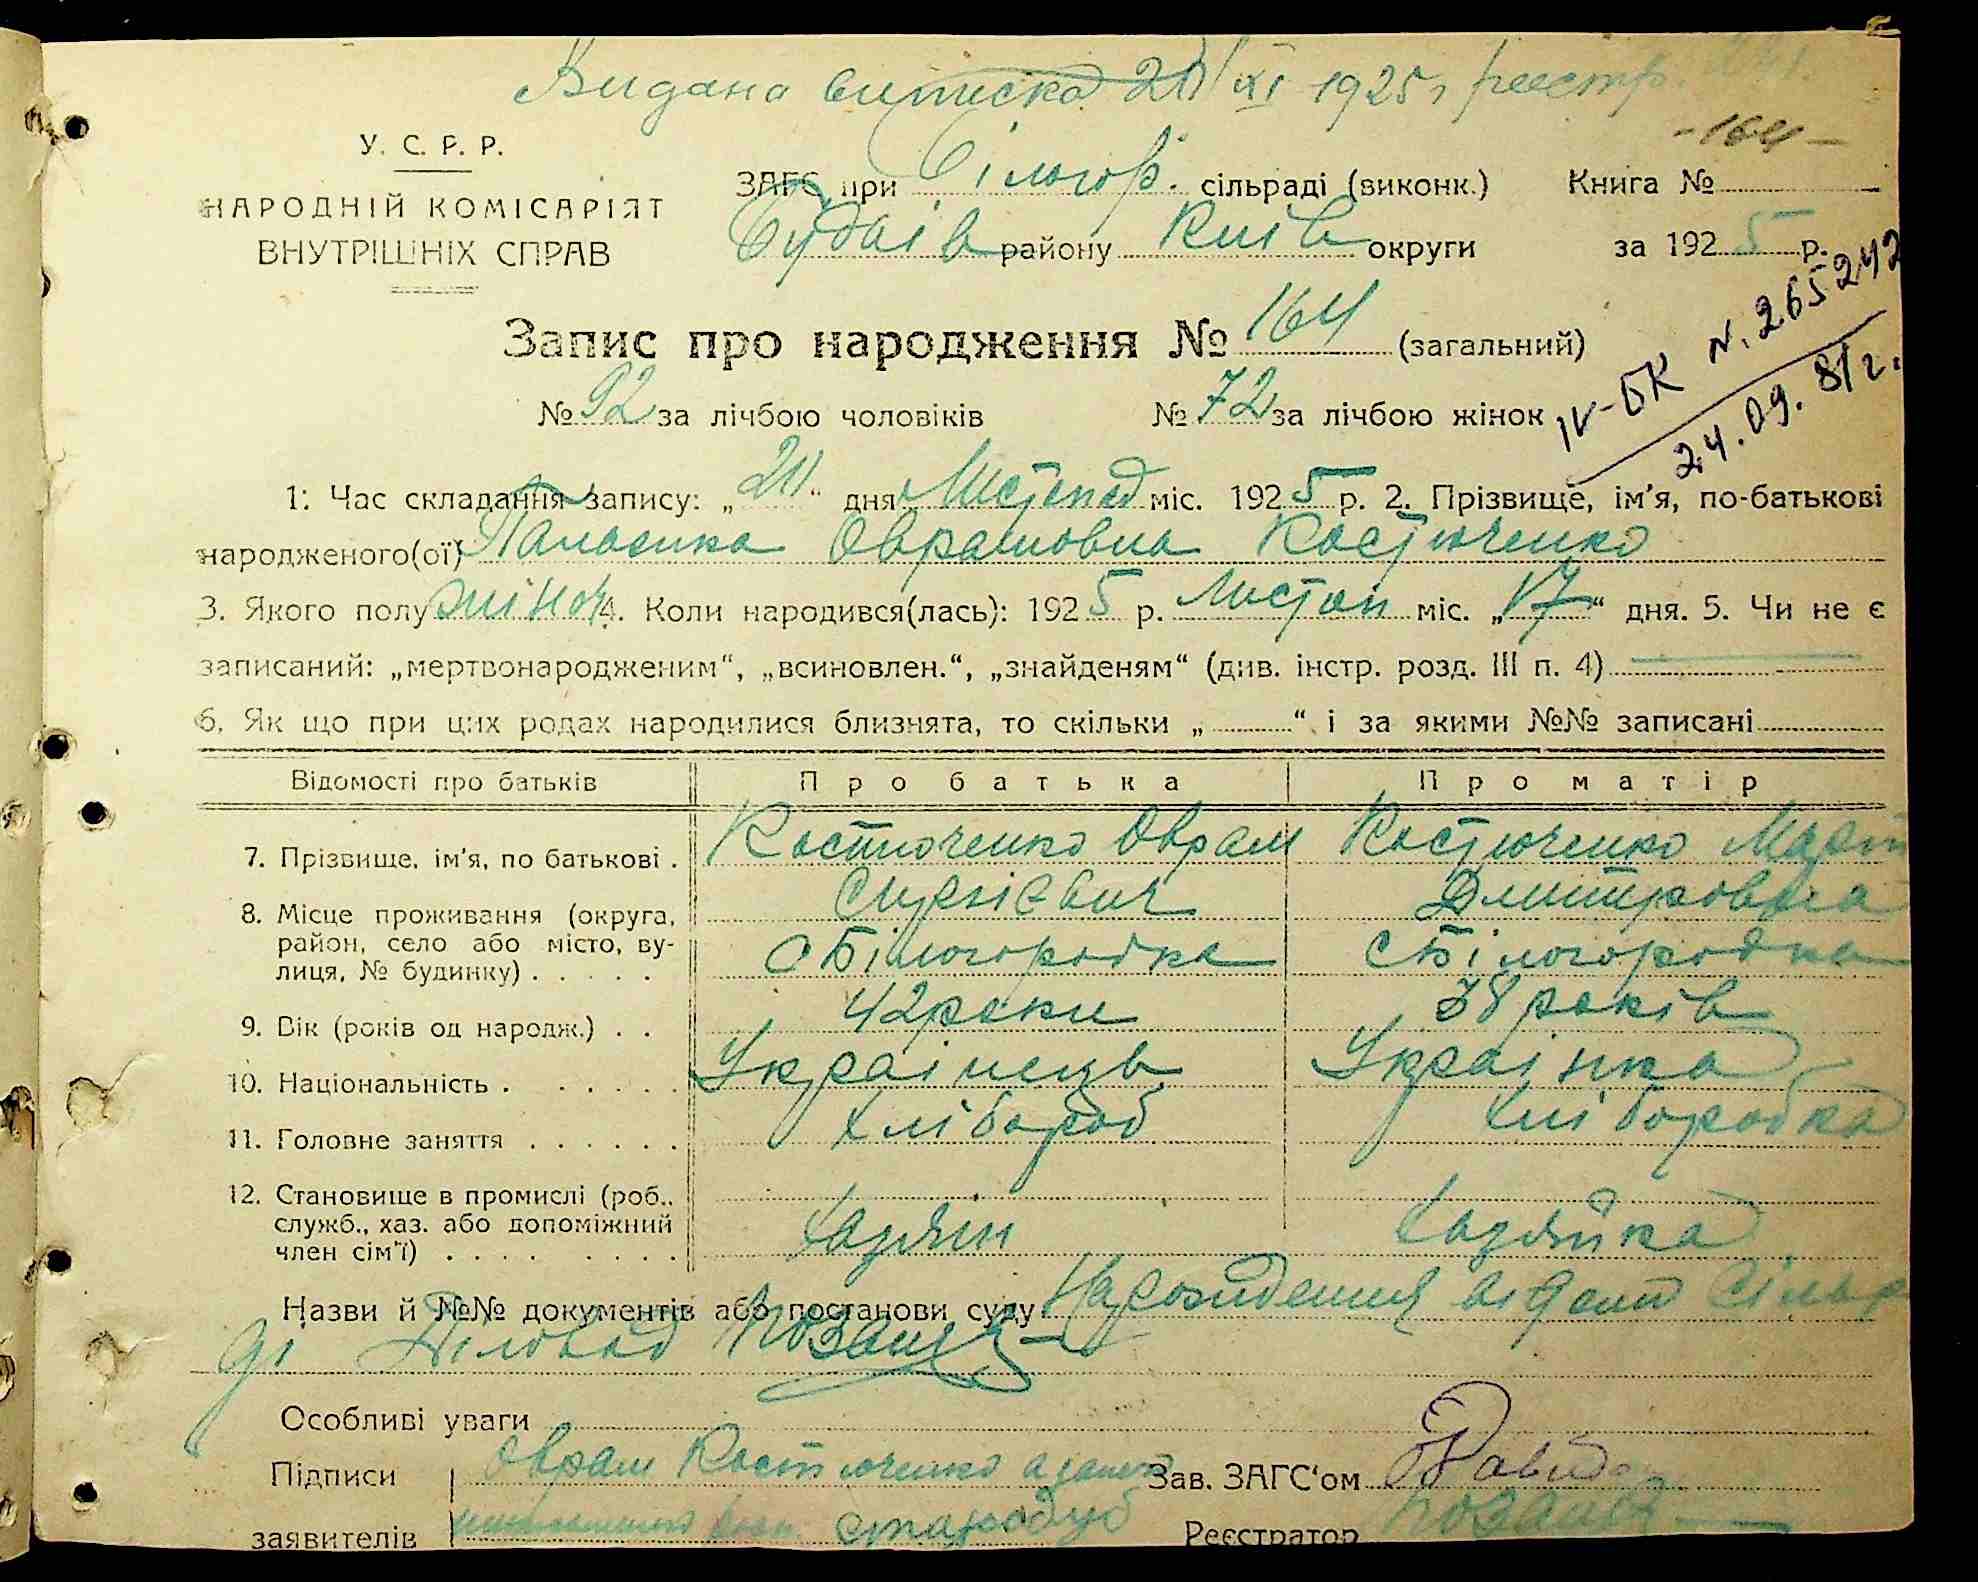 Видана виписка 20/XI 1925 р реестр.
-164-
У. С. Р. Р.
НАРОДНІЙ КОМІСАРІЯТ
ВНУТРІШНІХ СПРАВ
ЗАГС при Білогор. сільраді (виконк.) Книга №
Будаів району Киів округи за 1925 р.
IV-БК N. 265242
24.09.81г.
Запис про народження № 164 (загальний)
№ 92 за лічбою чоловіків № 72 за лічбою жінок
1. Час складання запису: „20“ дня Листопад міс. 1925 р. 2. Прізвище, ім'я, по-батькові
народженого(ої) Палажка Оврамовна Костюченко
3. Якого полу жіноч 4. Коли народився(лась): 1925 р. Листоп міс. „17“ дня. 5. Чи не є
записаний: „мертвонародженим“, „всиновлен.“, „знайденям“ (див. інстр. розд. III п. 4)
6. Як що при цих родах народилися близнята, то скільки „ “ і за якими №№ записані
Відомості про батьків Про батька Про матір
7. Прізвище, ім'я, по батькові . Костюченко Оврам Костюченко Март
Сиргієвич Дмитровна
8. Місце проживання (округа, район, село або місто, вулиця, № будинку) . . . . . с Білогородка с Білогородка
9. Вік (років од народж.) . . 42 роки 38 років
10. Національність . . . . . . Украінець Украінка
11. Головне заняття . . . . . . Хлібороб Хліборобка
12. Становище в промислі (роб., служб., хаз. або допоміжний член сім'ї) . . . . . . . . . Хазяін Хазяйка
Назви й №№ документів або постанови суду Народження відоме Сільра
ді Діловод
Особливі уваги
Підписи Оврам Костюченко Зав. ЗАГС'ом
заявителів Стародуб Реєстратор